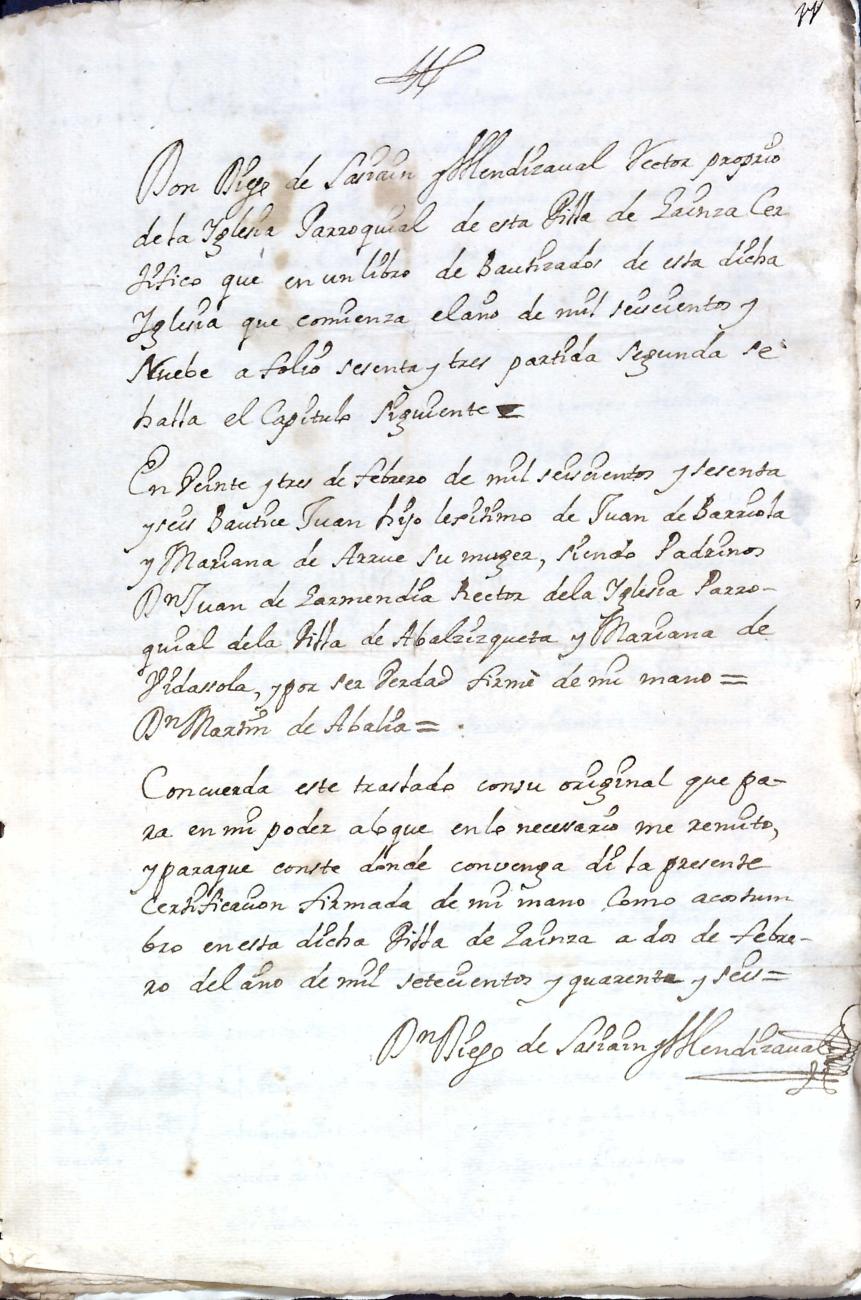 Don Diego de Sasiain y Mendizaval Rector proprio
de la Iglesia Parroquial de esta Villa de Gainza Cer
tifico que en un libro de Bautizados de esta dicha
Iglesia que comienza el año de mil seiscientos y
Nuebe a folio sesenta y tres partida segunda se
halla el Capitulo siguiente =
En Veinte y tres de febrero de mil seiscientos y sesenta
y seis Bautice Juan hijo lexitimo de Juan de Barriola
y Mariana de Arrue su muger, siendo Padrinos
Dn Juan de Garmendia Rector de la Iglesia Parro-
quial dela Villa de Abalzizqueta y Mariana de
Vidassola, y por ser Verdad firmè de mi mano =
Dn Martin de Abalia = .
Concuerda este traslado consu original que pa-
ra en mi poder alo que en lo necesario me remito,
y paraque conste donde convenga di la presente
Certificacion firmada de mi mano Como acostum
bro en esta dicha Villa de Gainza a dos de febre-
ro del año de mil setecientos y quarenta y seis =
Dn Diego de Sasiain y Mendizaval